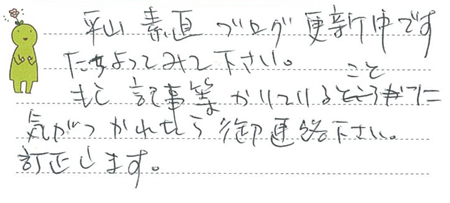 平山 素直 ブログ 更新中です
たちよってみて下さい。
もし 記事等 かけていることに
気がつかれたら御連絡下さい。
訂正します。